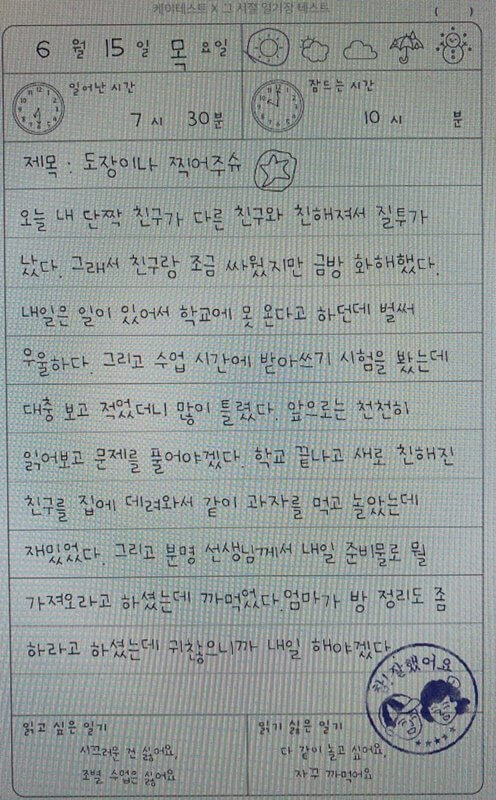 케이테스트 X 그 시절 일기장 테스트
( )
6 월 15 일 목 요일
일어난 시간
7 시 30 분
잠드는 시간
10 시 분
제목 : 도장이나 찍어주슈
오늘 내 단짝 친구가 다른 친구와 친해져서 질투가
났다. 그래서 친구랑 조금 싸웠지만 금방 화해했다.
내일은 일이 있어서 학교에 못 온다고 하던데 벌써
우울하다. 그리고 수업 시간에 받아쓰기 시험을 봤는데
대충 보고 적었더니 많이 틀렸다. 앞으로는 천천히
읽어보고 문제를 풀어야겠다. 학교 끝나고 새로 친해진
친구를 집에 데려와서 같이 과자를 먹고 놀았는데
재밌었다. 그리고 분명 선생님께서 내일 준비물로 뭘
가져오라고 하셨는데 까먹었다. 엄마가 방 정리도 좀
하라고 하셨는데 귀찮으니까 내일 해야겠다
참! 잘했어요
읽고 싶은 일기
시끄러운 건 싫어요,
조별 수업은 싫어요
읽기 싫은 일기
다 같이 놀고 싶어요,
자꾸 까먹어요